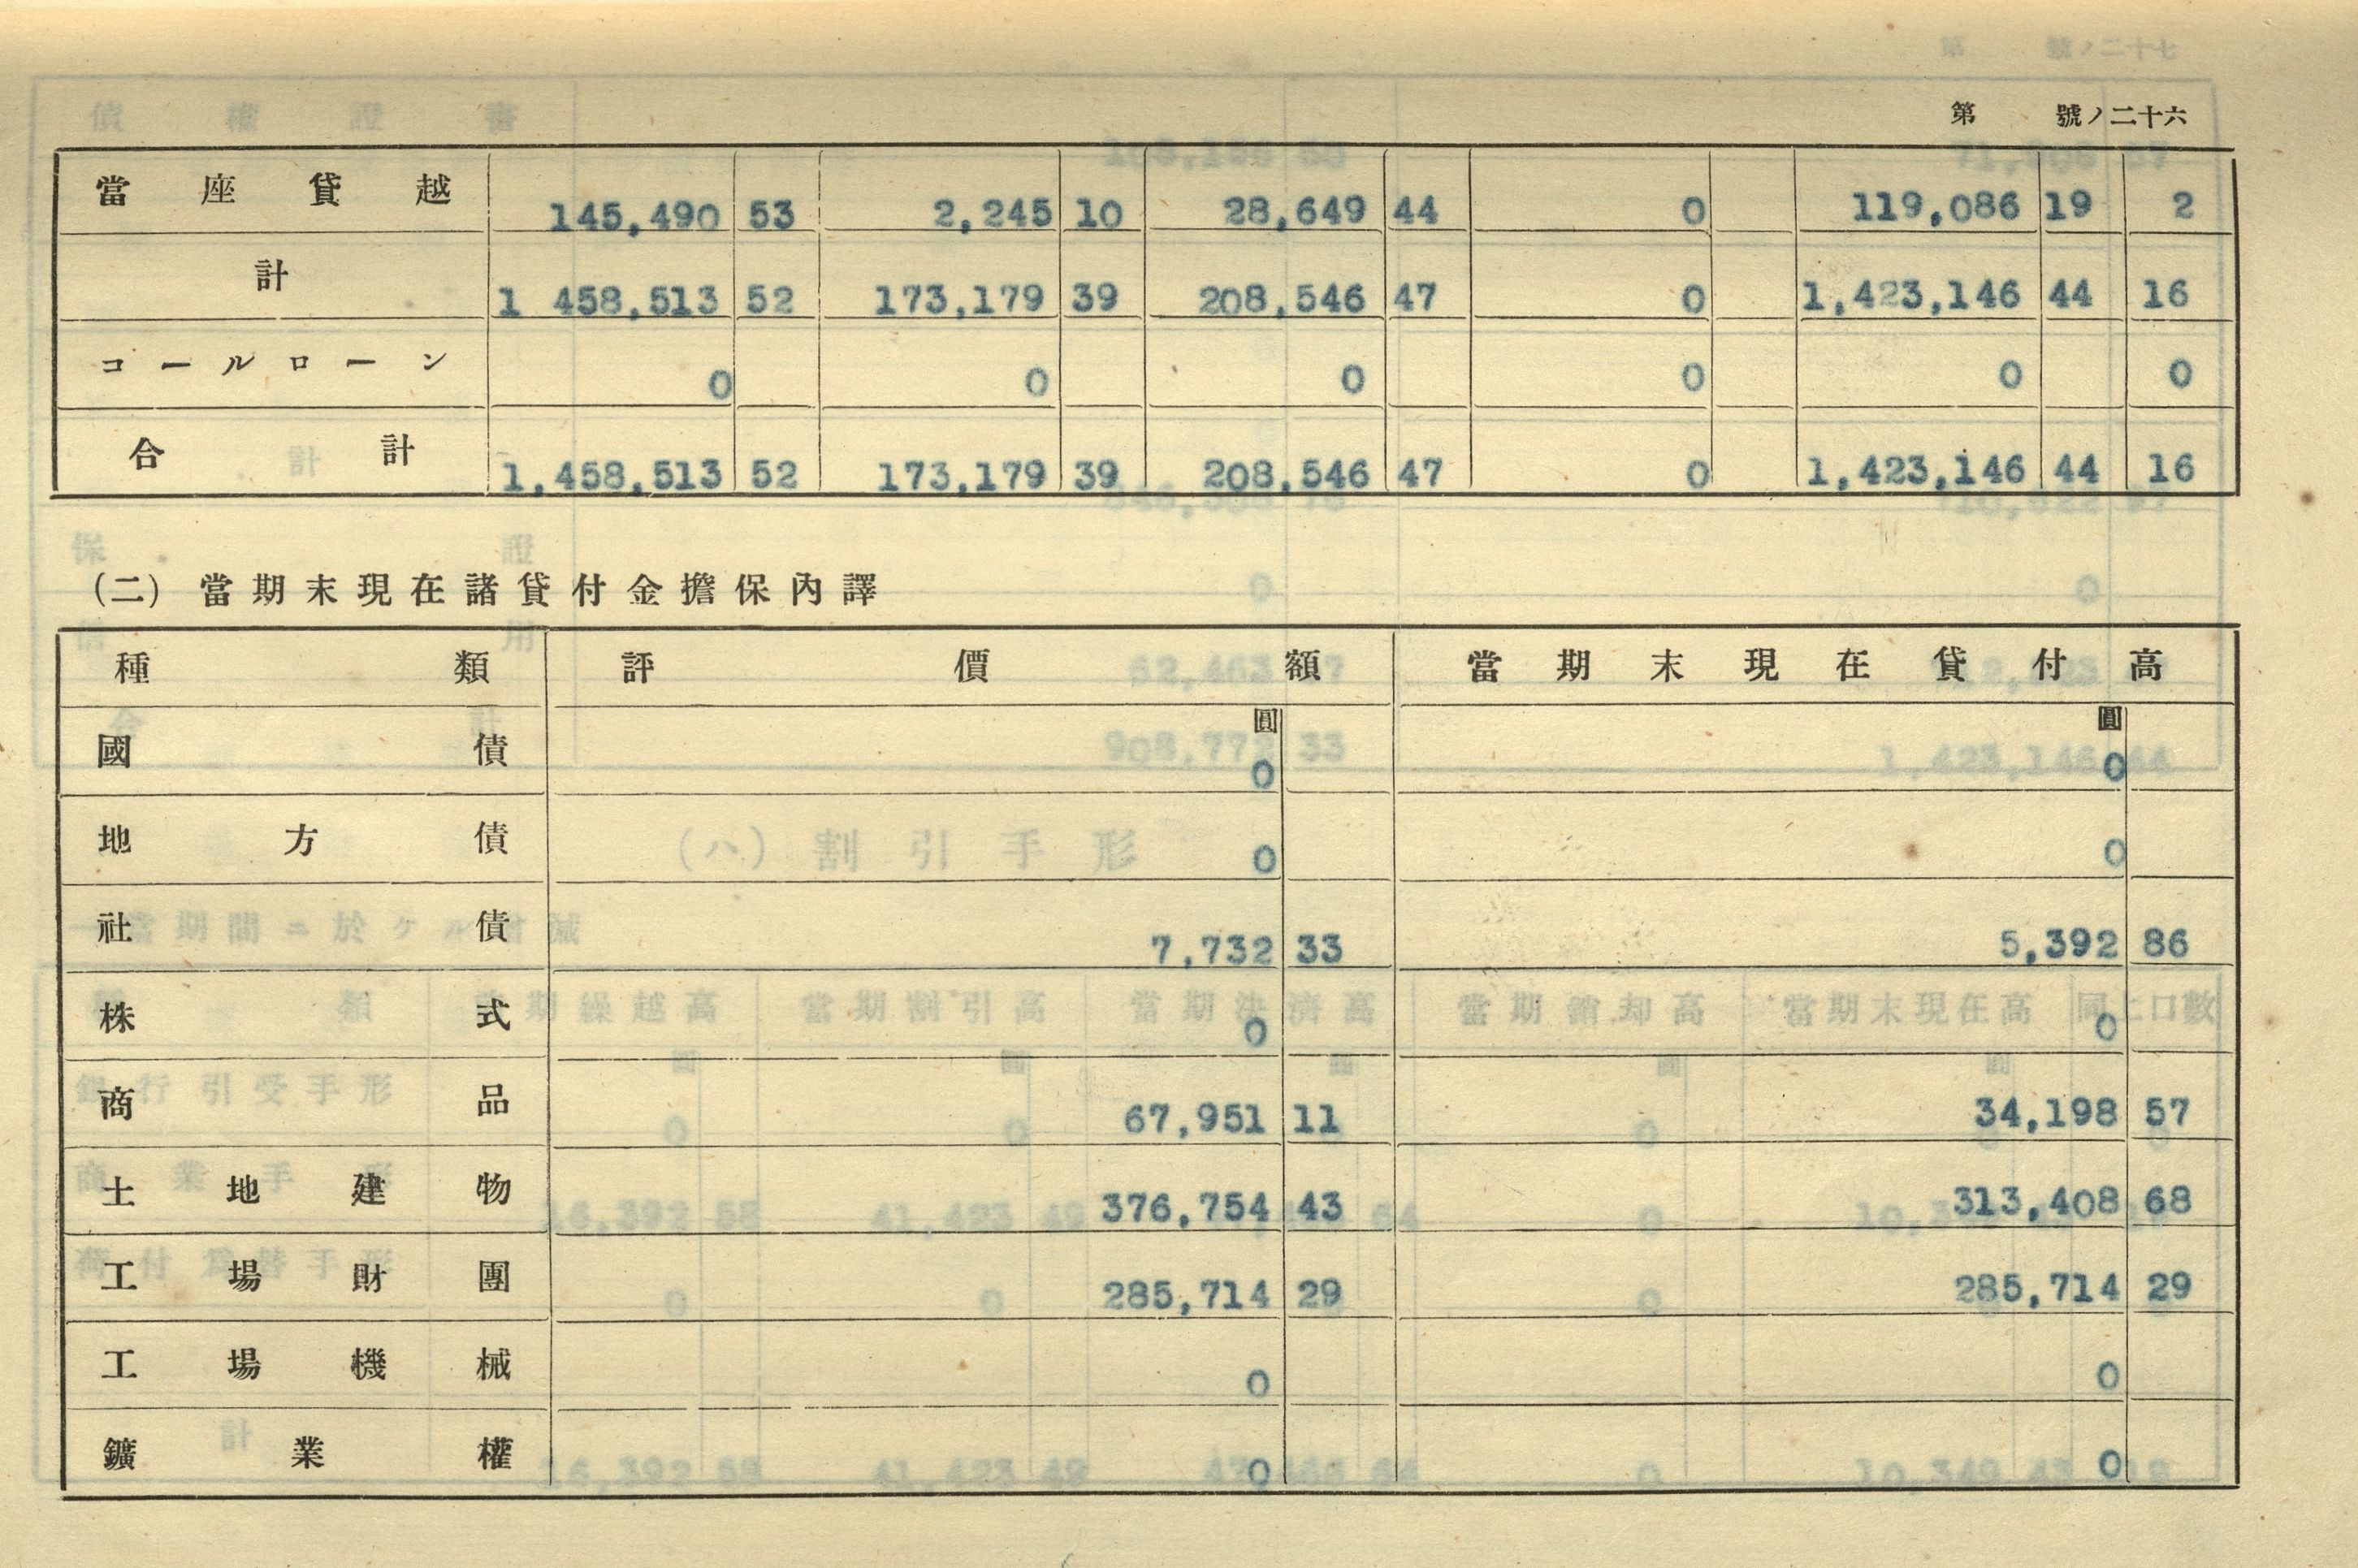 第 號ノ二十六
當座貸越 145,490 53 2,245 10 28,649 44 0 119,086 19 2
計 1 458,513 52 173,179 39 208,546 47 0 1,423,146 44 16
コールローン 0 0 0 0 0 0
合計 1,458,513 52 173,179 39 208,546 47 0 1,423,146 44 16
(二) 當期末現在諸貸付金擔保內譯
種類 評價額 當期末現在貸付高
圓 圓
國債 0 0
地方債 0 0
社債 7,732 33 5,392 86
株式 0 0
商品 67,951 11 34,198 57
土地建物 376,754 43 313,408 68
工場財團 285,714 29 285,714 29
工場機械 0 0
鑛業權 0 0